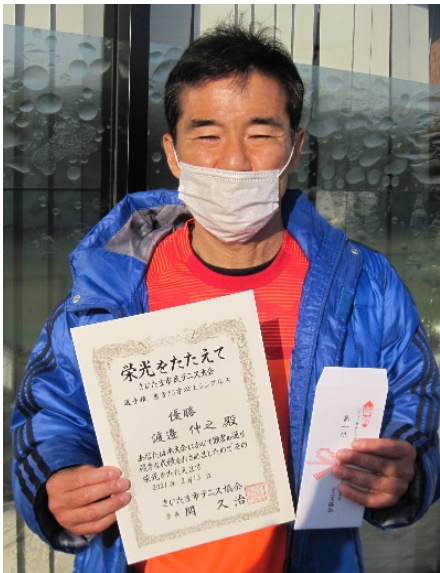 栄光をたたえて
さいたま市民テニス大会
選手権 男子55才以上シングルス
優勝
渡邉 伸之 殿
あなたは本大会において頭書の通り
優秀な成績をおさめましたのでその
栄光をたたえます
2021年 2月13日
さいたま市テニス協会
会長 関 久治